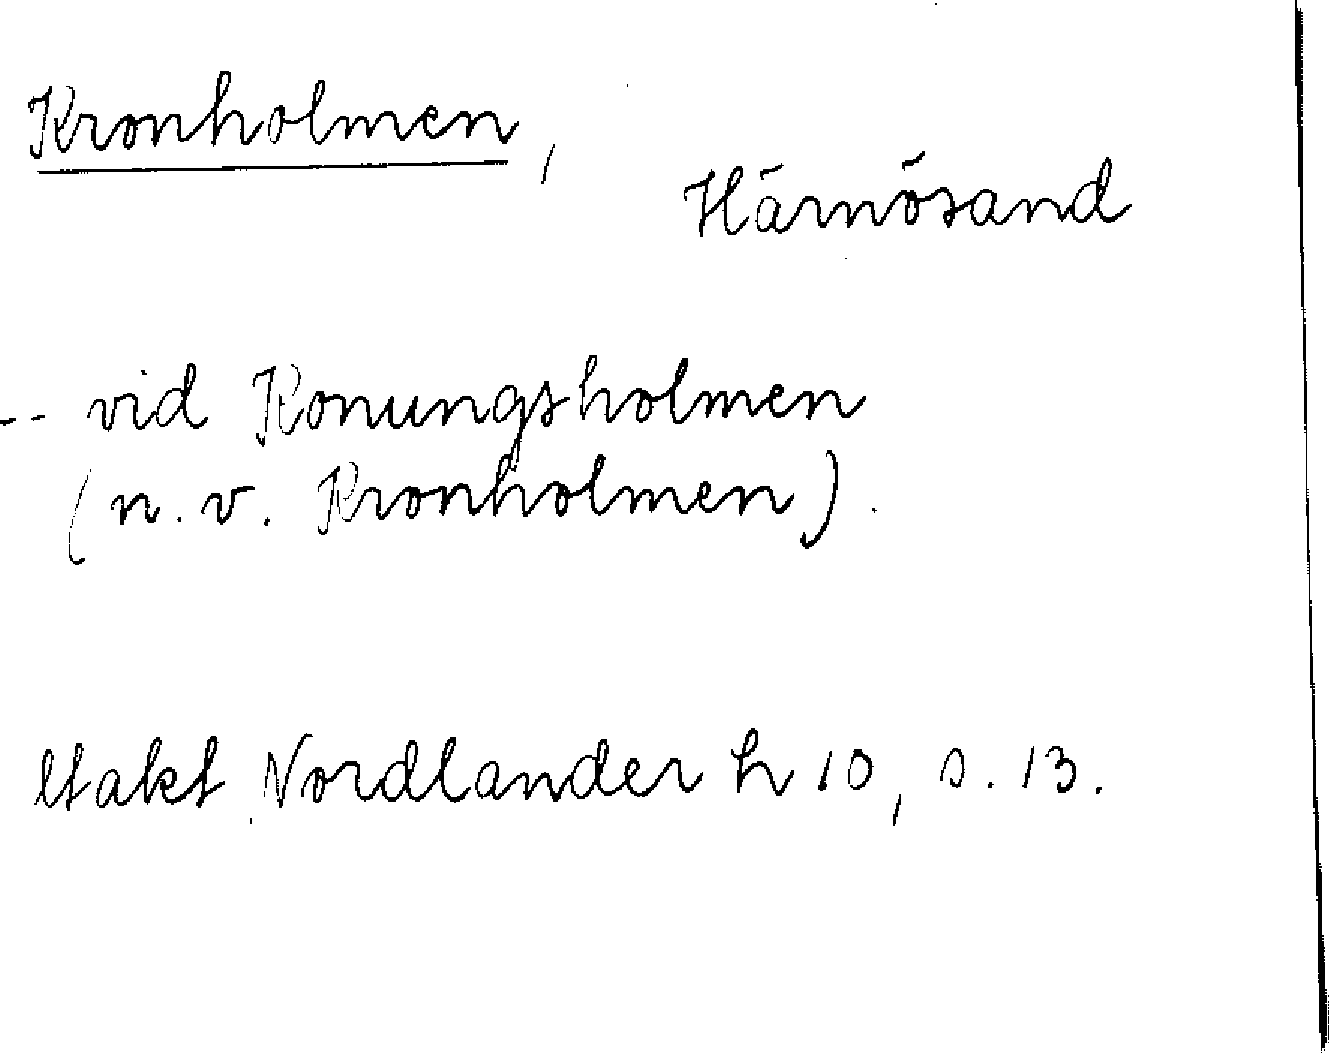 Kronholmen,
Härnösand
-- vid Konungsholmen
(n. v. Kronholmen).
Utakt Nordlander h 10, s. 13.